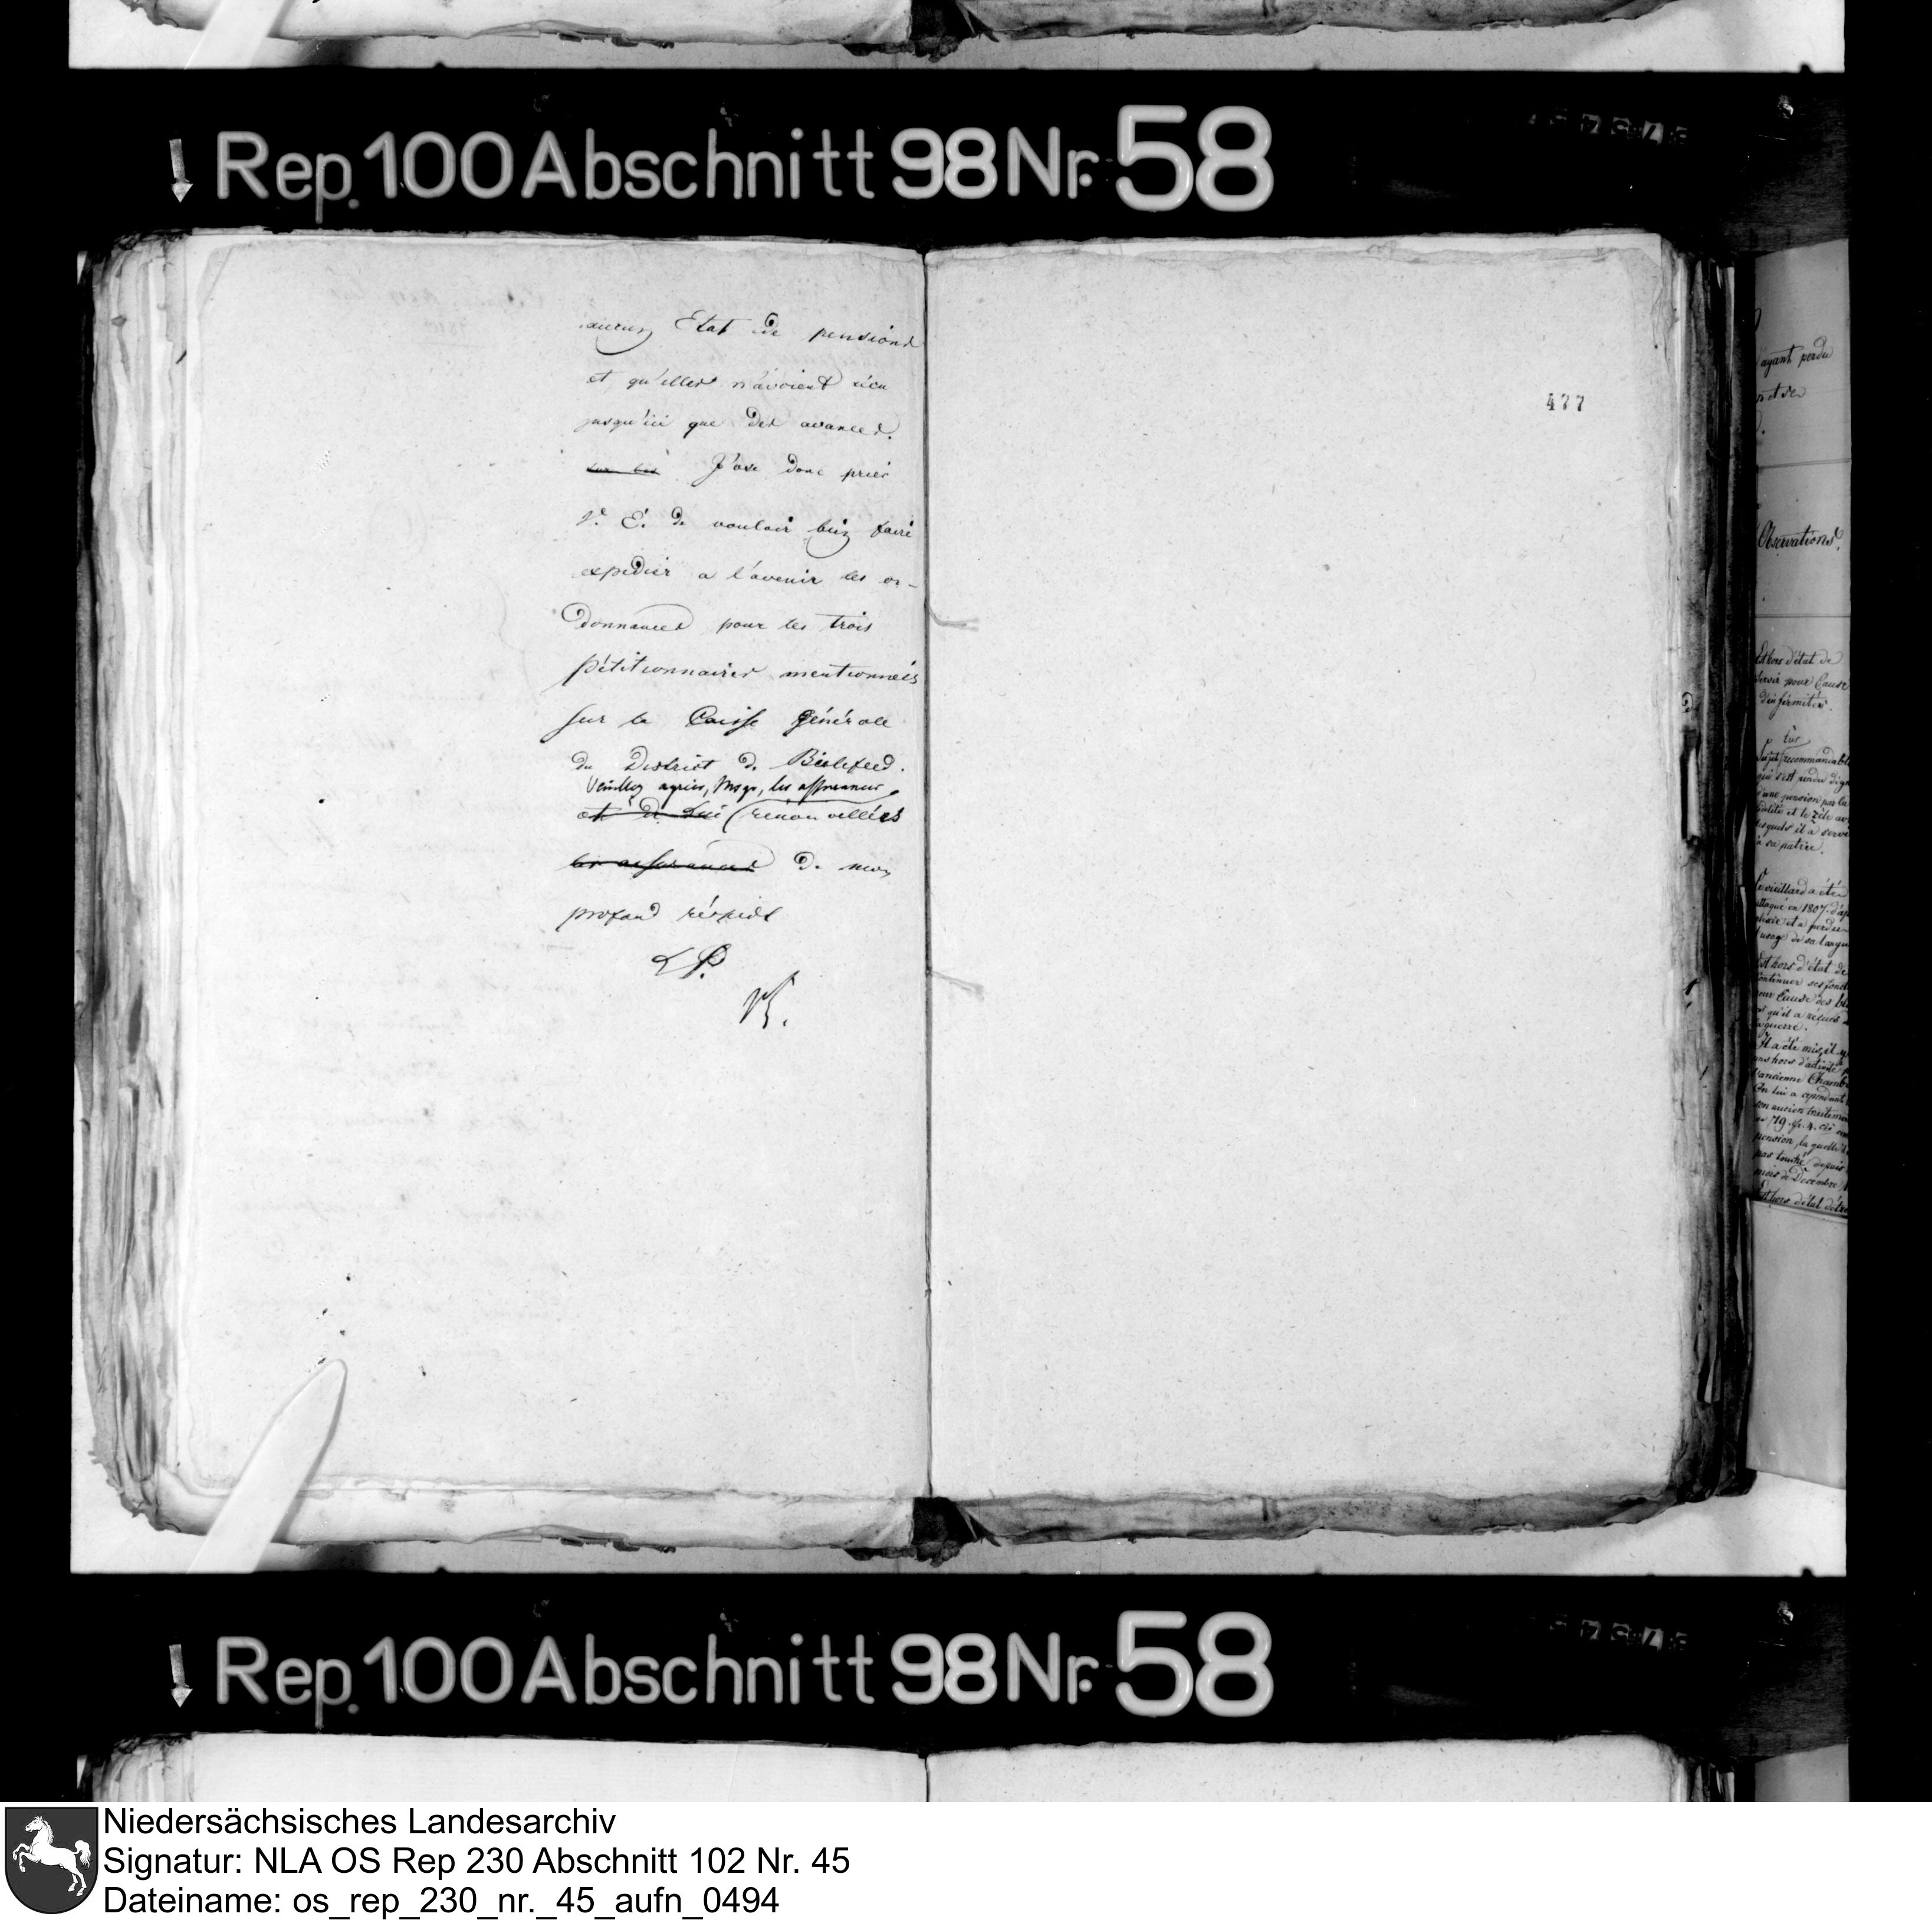 Rep. 100 Abschnitt 98 Nr. 58
aucun Etat de pensions
et qu'elles n'avoient reçu
jusqu'ici que des avances.
J'ose donc prier
V. E. de vouloir bien faire
expedier a l'avenir les or-
donnances pour les trois
pétitionnaires mentionnés
sur la Caisse générale
du District de Bielefeld.
Veuillez agréer, Msgr, les assurances
renouvellées
les assurances de mon
profond réspect
L P.
477
ayant perdu
Observations.
Est hors d'état de
servir pour Cause
d'infirmités.
Sujet très recommandable
qui s'est rendu dign
d'une pension par la
fidélité et le zèle av
lesquels il a servi
à sa patrie.
Ce vieillard a été
attaqué en 1807. d'ap
plexie et a perdu
l'usage de sa langu
Est hors d'état de
continuer ses fonct
pour Cause des bl
qu'il a reçues
guerre.
Il a été mis, il y
ans hors d'activité
l'ancienne Chamb
On lui a cependant
son ancien traiteme
pension, laquelle
pas touché depuis
mois de Decembre
Est hors d'état d'êtr
Rep. 100 Abschnitt 98 Nr. 58
Niedersächsisches Landesarchiv
Signatur: NLA OS Rep 230 Abschnitt 102 Nr. 45
Dateiname: os_rep_230_nr._45_aufn_0494